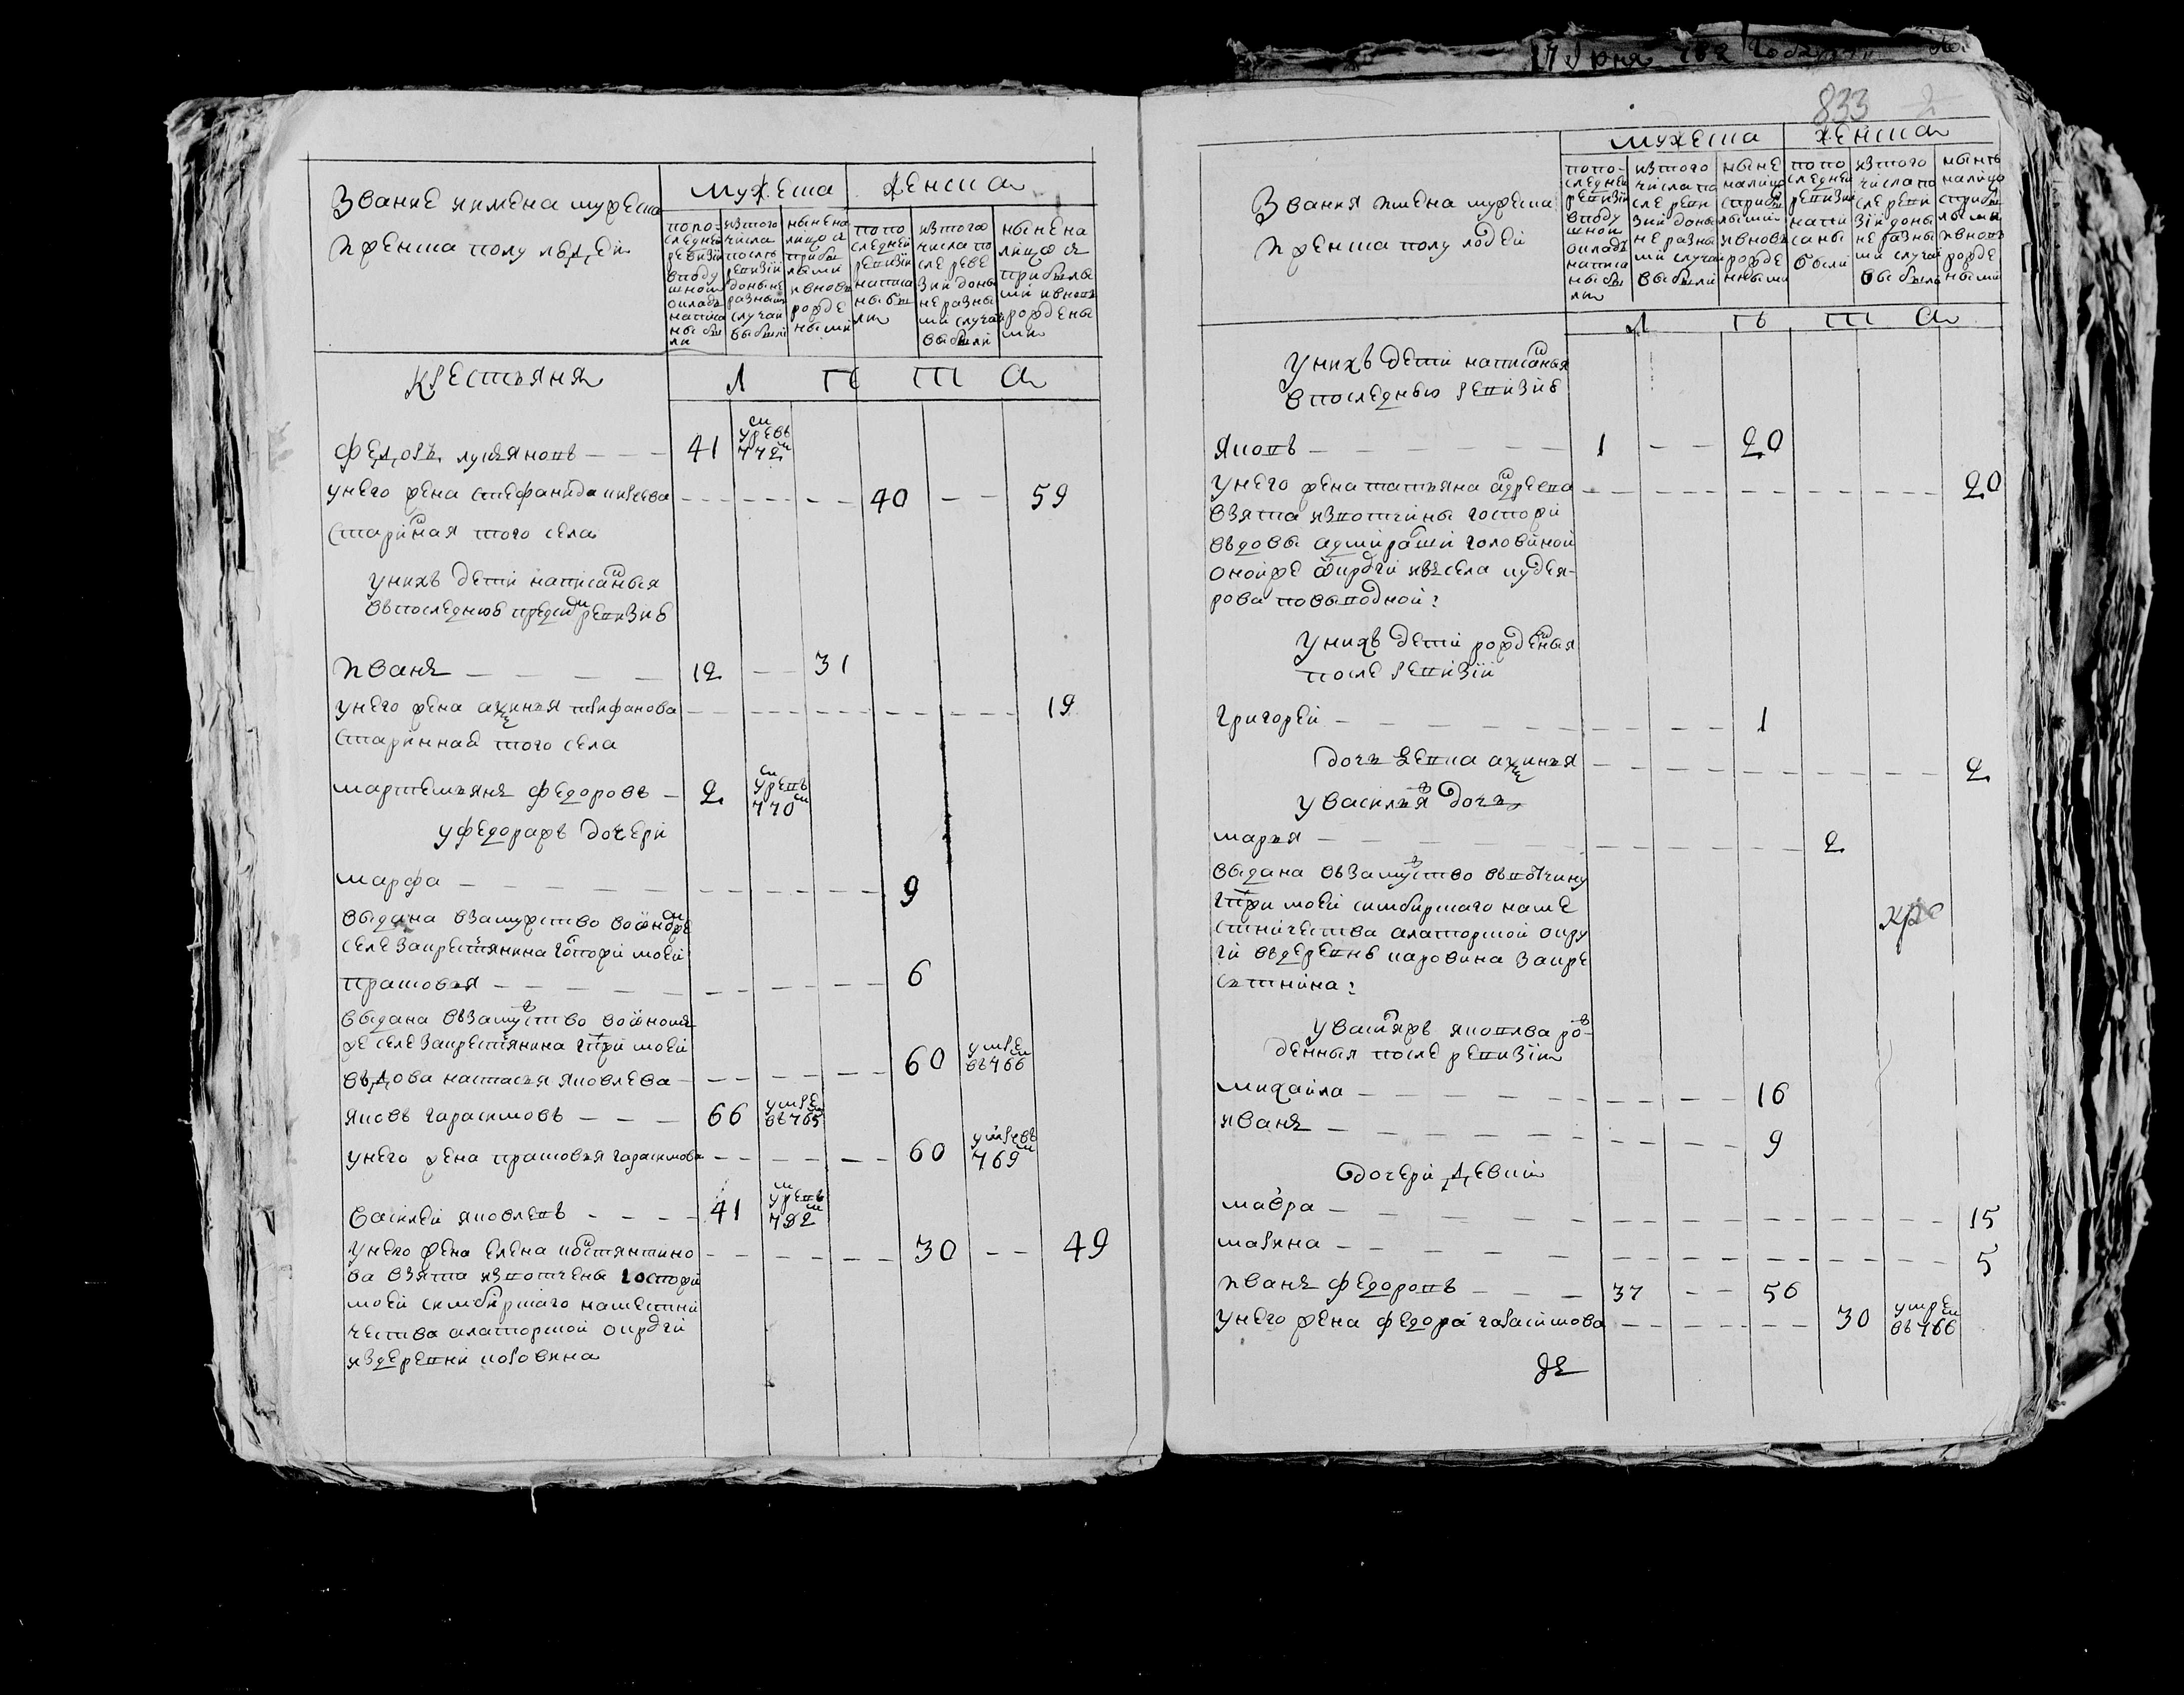 833
Звание иимена мужеска
иженска полу людей
мужеска
женска
попо-
следней
ревизии
вподу
шной
окладъ
написа
ны бы
ли
изтого
числа
послѣ
ревизии
доныне
разными
случаи
выбыли
нынена
лицо съ
прибы
лыми
ивновь
рожде
ными
попо
следней
ревизии
написа
ны бы
ли
изтого
числа по
сле реве
зии доны
не разны
ми случаи
выбыли
нынена
лицо съ
прибылы
ми ивновь
рождены
ми
крестьяня
Л П Т А
Федоръ лукьяновъ 41 умре въ 772м
унего жена стефанида киреева 40 59
старинная того села
унихъ дети написанныя
въпоследнюю пред сим ревизию
иванъ 12 31
унего жена аксинья трифанова 19
стариннай того села
мартемьянъ федоровъ 2 умре въ 770м
уфедоражъ дочери
марфа 9
выдана взамужство воонойже
селе закрестьянина господи моей
прасковья 6
выдана възамужство воономъ
же селе закрестьянина гпжи моей
въдова настасья яковлева 60 умре въ 766м
яковъ гарасимовъ 66 умре въ 765м
унего жена прасковья гарасимова 60 умре въ 769м
василей яковлевъ 41 умре въ 782м
унего жена елена костянтино 30 49
ва взята извотчены госпожи
моей симбирскаго наместни
чества алаторской округи
издеревни коровина
Звания имена мужеска
иженска полу людей
мужеска
женска
попо-
следней
ревизии
вподу
шной
окладъ
написа
ны бы
ли
изтого
числа по
сле реви
зии доны
не разны
ми случаи
выбыли
ныне
налицо
сприбы
лыми
ивновь
рожде
нными
попо
следней
ревизии
напи
саны
были
изтого
числа по
сле реви
зии доны
не разны
ми случаи
выбыли
ныне
налицо
сприбы
лыми
ивновь
рожде
ными
Л П Т А
унихъ дети написанныя
впоследнью ревизию
яковъ 1 20
унего жена татьяна андреева 20
взята извотчины госпожи
въдовы адмиралши головиной
онойже округи изъ села кудея-
рова повыводной:
унихъ дети рожденныя
после ревизии
григорей 1
дочь девка аксинья 2
увасилья дочь
марья 2
выдана възамуство въвотчину
гпжи моей симбирскаго наме
стничества алаторской окру
ги въдеревню коровина закре
стьнина:
увасильяжъ яковлева рож-
денныя после ревизии
михайла 16
иванъ 9
дочери девки
мавра 15
марина 5
иванъ федоровъ 37 56
унего жена федора гарасимова 30 умре въ 766м